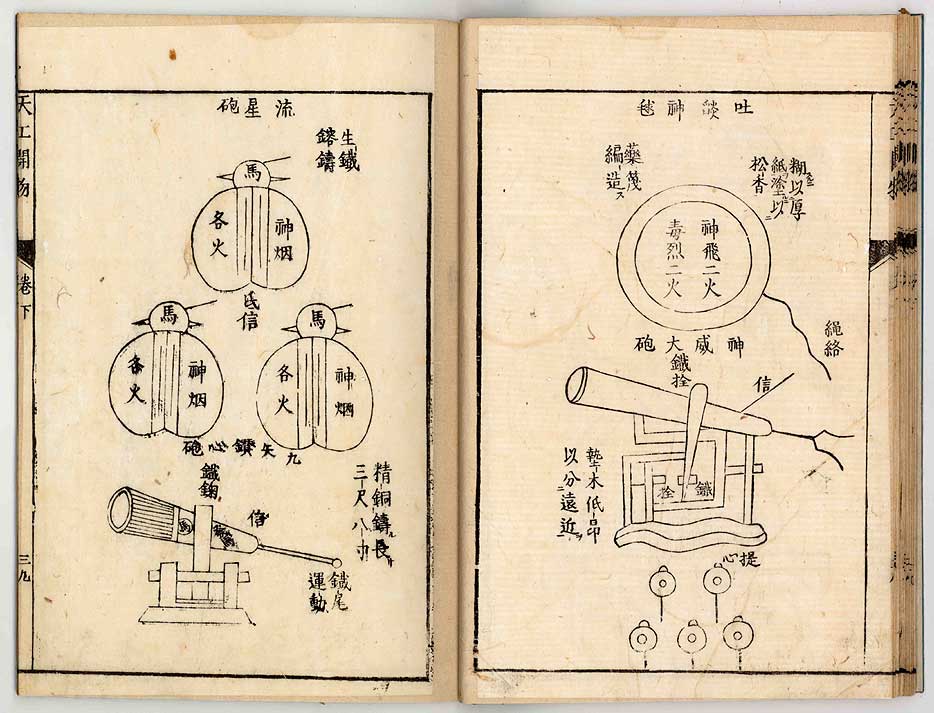 吐燄神毬
糊以厚
紙塗以
松香
藥篾
編造ス
神飛二火
毒烈二火
繩絡
神威大砲
鐵栓
信
鐵
栓
墊木低昂
以分遠近
提心
流星砲
生鐵
鎔鑄
馬
神烟
各火
信
馬
神烟
各火
馬
神烟
各火
九矢鑽心砲
精銅鑄長
三尺八寸
信
鐵尾
運動
天工開物
卷下
三九